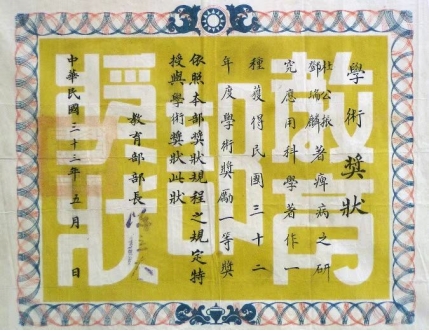 學術獎狀
杜公振
鄧瑞麟
著痺病之研
究應用科學著作一
種獲得民國三十二
年度學術獎勵一等獎
依照本部獎狀規程之規定特
授與學術獎狀此狀
教育部部長
中華民國三十三年五月 日
教育
獎狀